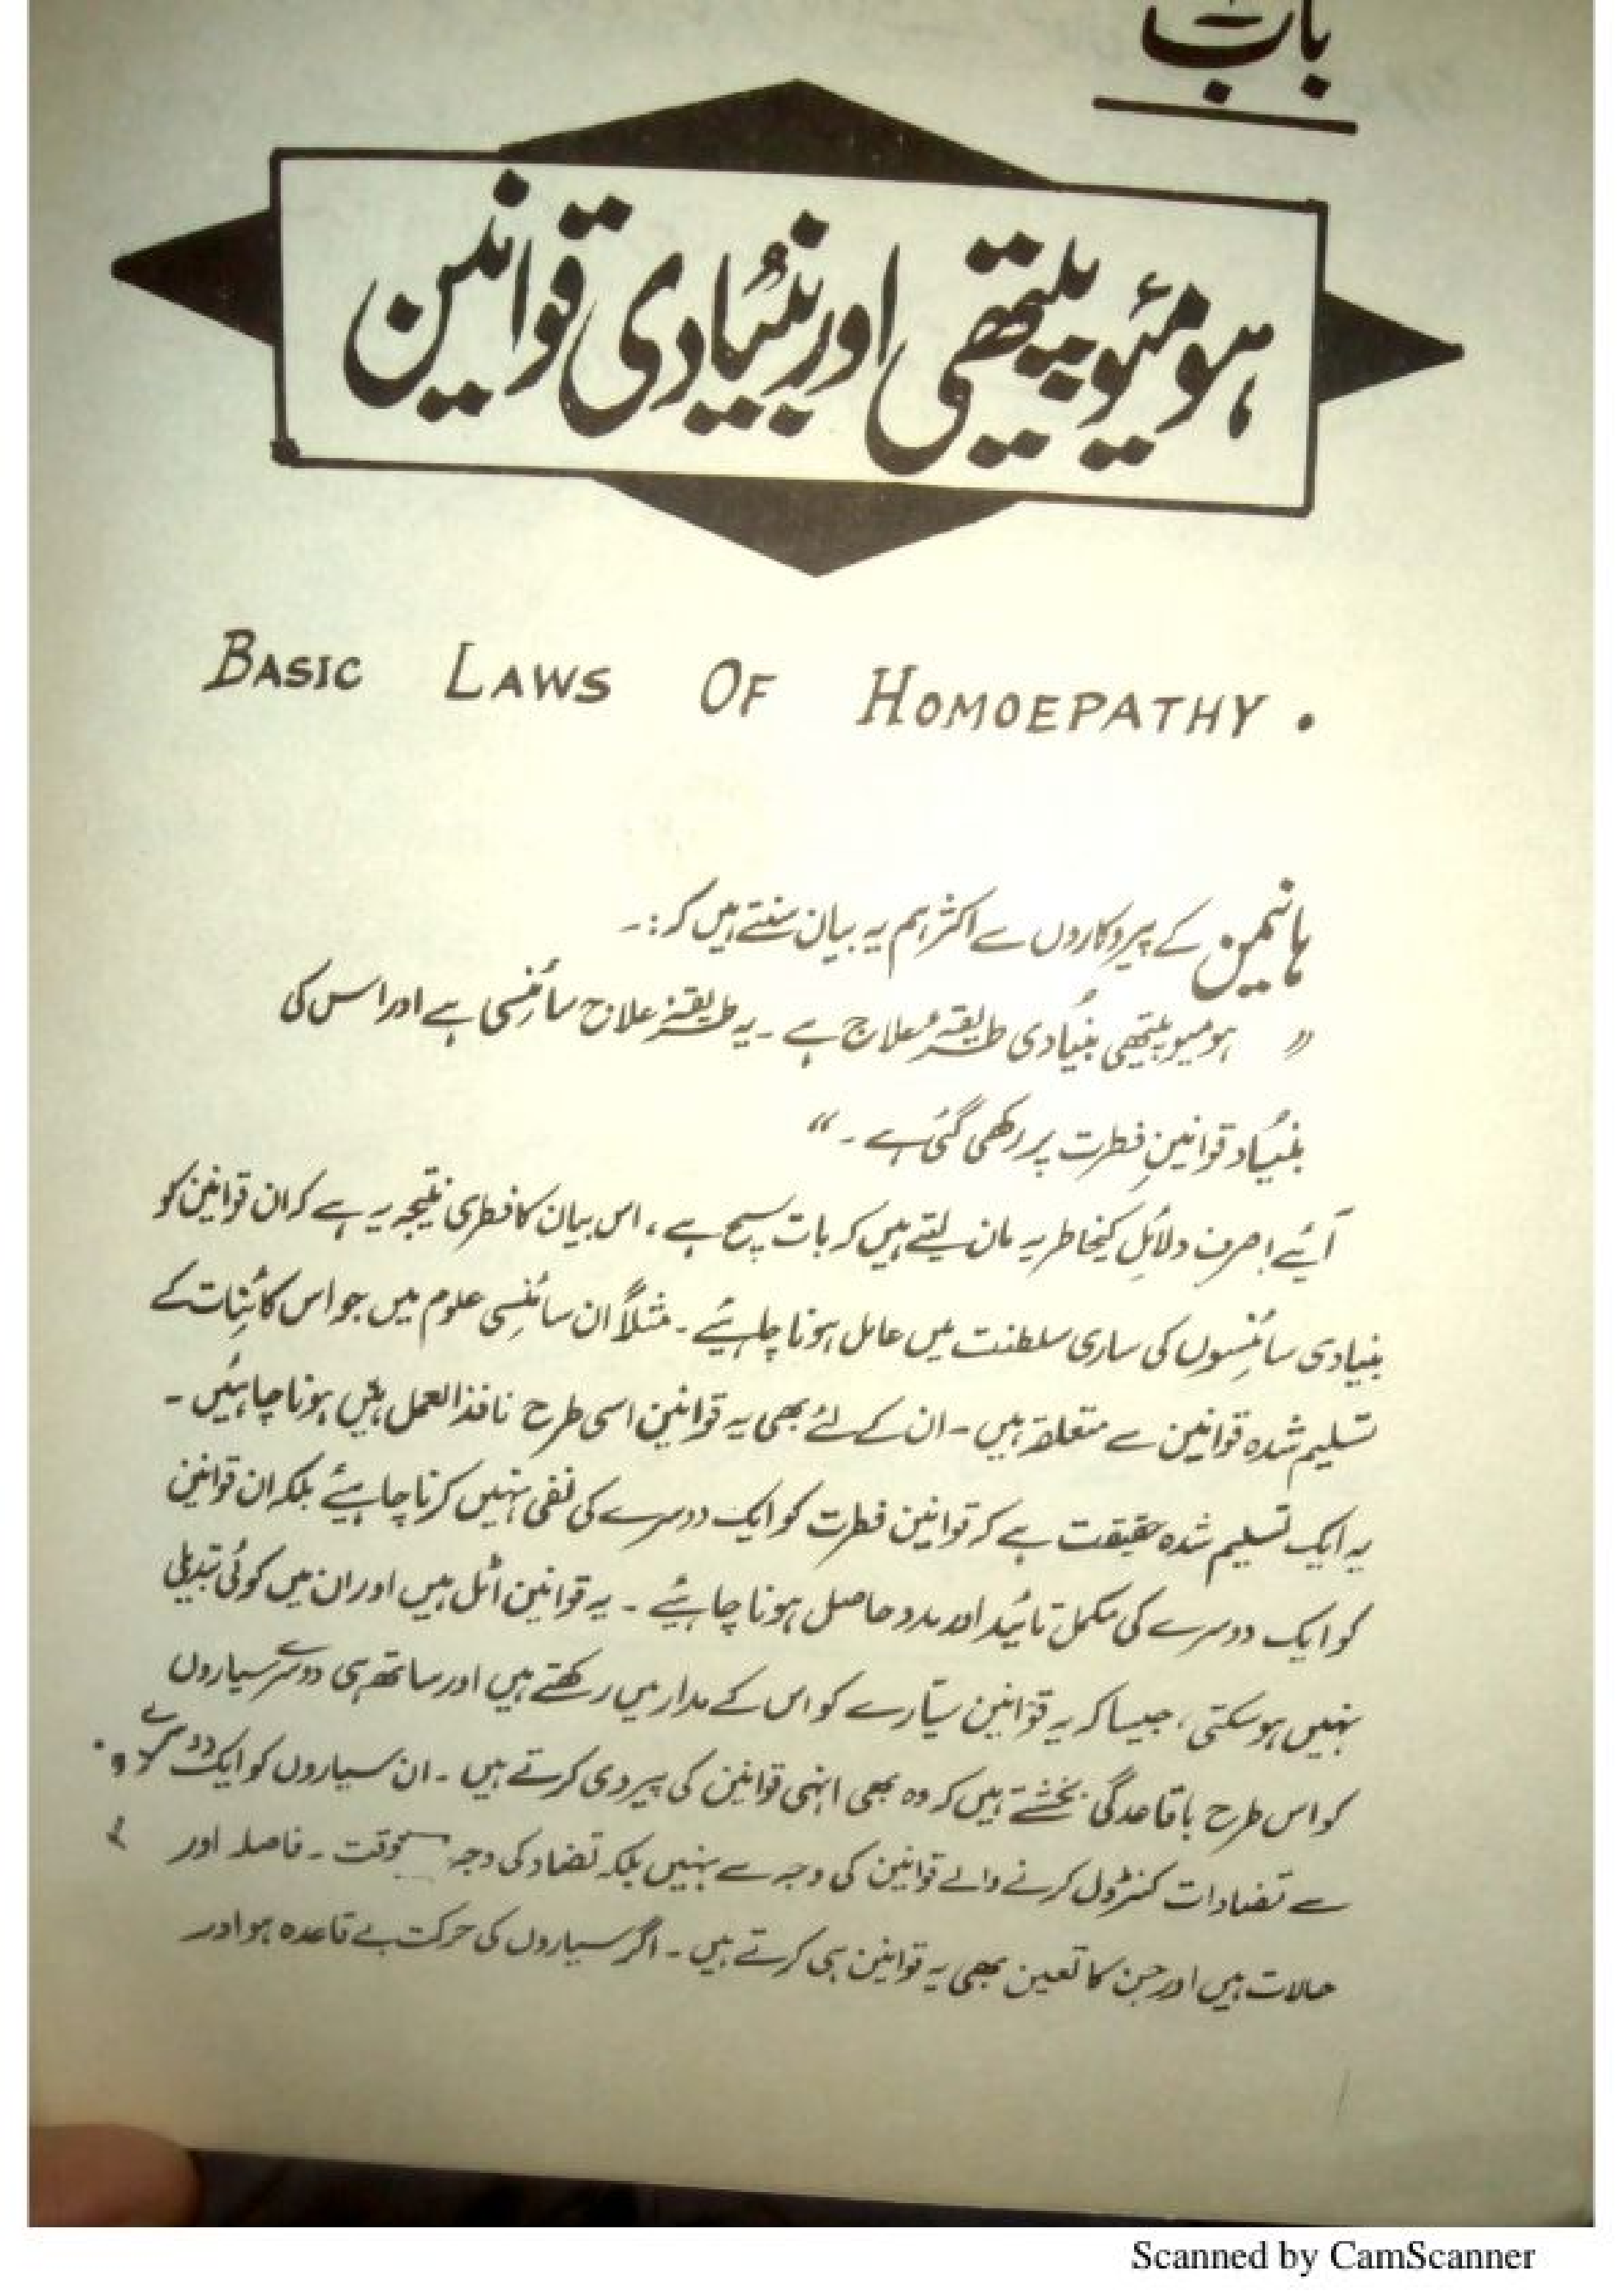 باب
ہومیوپیتھی اور بنیادی قوانین
BASIC LAWS OF HOMOEPATHY .
ہانیمن کے پیروکاروں سے اکثر ہم یہ بیان سنتے ہیں کہ :۔
” ہومیوپیتھی بنیادی طریقۂ علاج ہے ۔ یہ طریقۂ علاج سائنسی ہے اور اس کی
بنیاد قوانینِ فطرت پر رکھی گئی ہے ۔ “
آیئے ! صرف دلائل کیخاطر یہ مان لیتے ہیں کہ بات سچ ہے ، اس بیان کا فطری نتیجہ یہ ہے کہ ان قوانین کو
بنیادی سائنسوں کی ساری سلطنت میں عامل ہونا چاہیئے ۔ مثلاً ان سائنسی علوم میں جو اس کائنات کے
تسلیم شدہ قوانین سے متعلق ہیں ۔ ان کے لئے بھی یہ قوانین اسی طرح نافذ العمل ہونا چاہئیں ۔
یہ ایک تسلیم شدہ حقیقت ہے کہ قوانین فطرت کو ایک دوسرے کی نفی نہیں کرنا چاہیئے بلکہ ان قوانین
کو ایک دوسرے کی مکمل تائید اور مدد حاصل ہونا چاہیئے ۔ یہ قوانین اٹل ہیں اور ان میں کوئی تبدیلی
نہیں ہو سکتی ، جیسا کہ یہ قوانین سیّارے کو اس کے مدار میں رکھتے ہیں اور ساتھ ہی دوسرے سیاروں
کو اس طرح باقاعدگی بخشتے ہیں کہ وہ بھی انہی قوانین کی پیروی کرتے ہیں ۔ ان سیاروں کو ایک دوسرے
سے تضادات کنٹرول کرنے والے قوانین کی وجہ سے نہیں بلکہ تضاد کی وجہ وقت ۔ فاصلہ اور
حالات ہیں اور جن کا تعین بھی یہ قوانین ہی کرتے ہیں ۔ اگر سیاروں کی حرکت بے قاعدہ ہو اور
Scanned by CamScanner